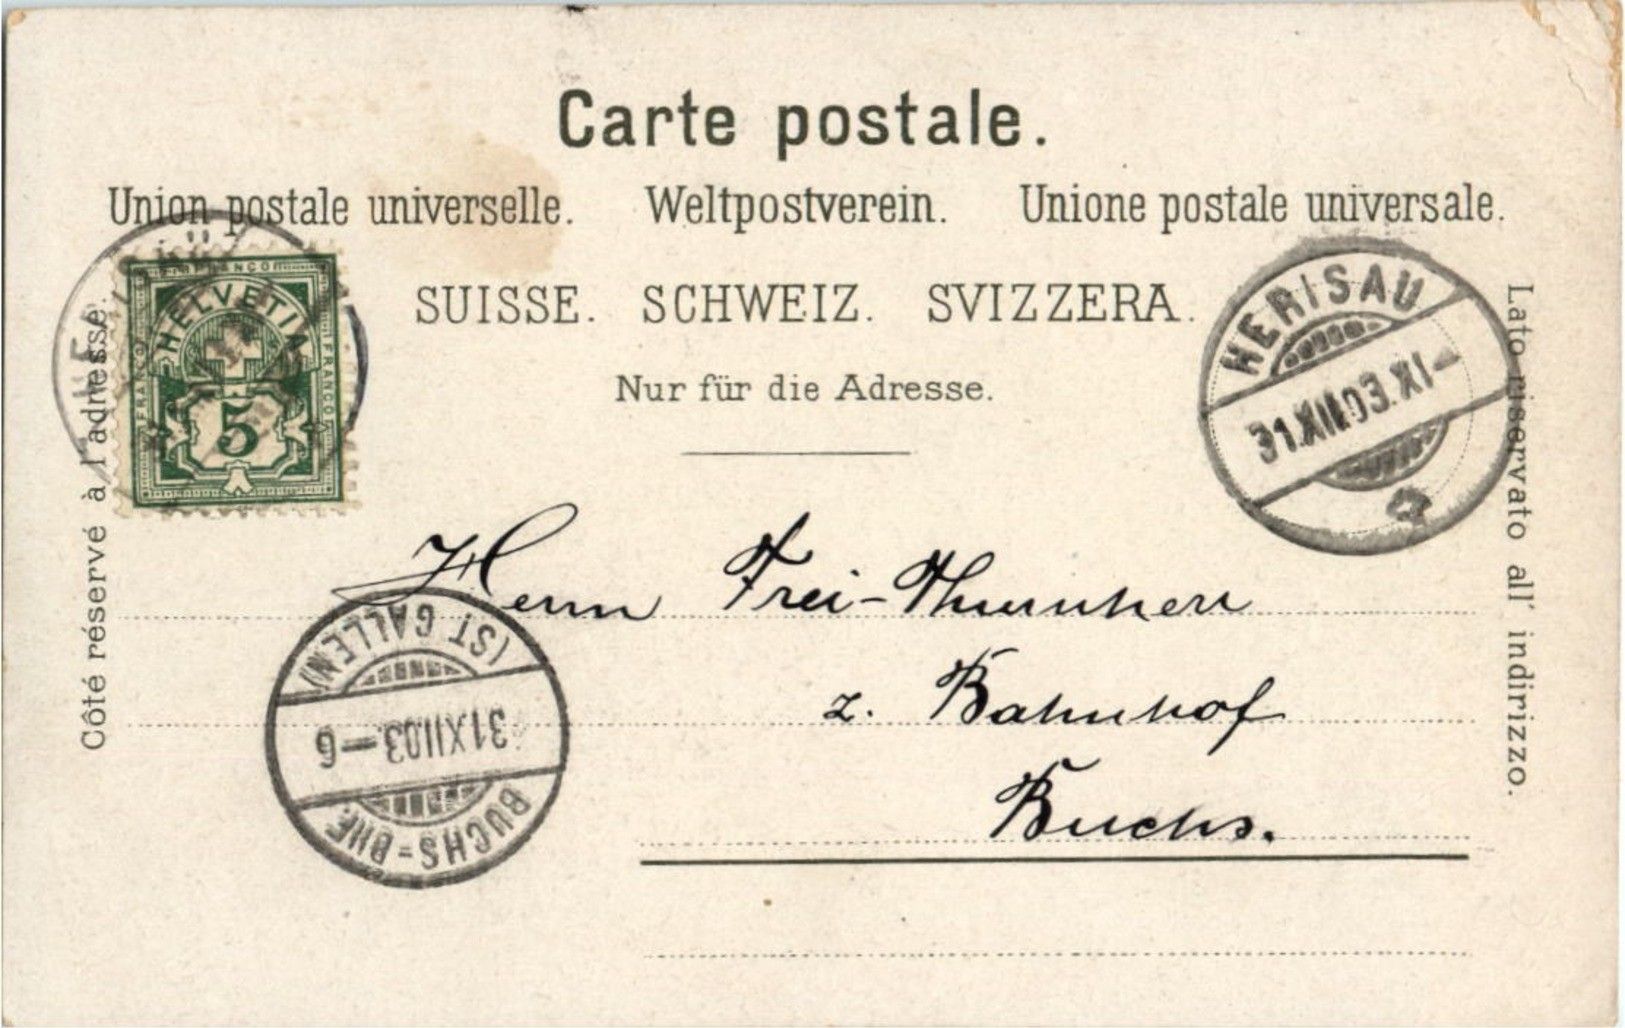 Carte postale.
Union postale universelle. Weltpostverein. Unione postale universale.
SUISSE. SCHWEIZ. SVIZZERA.
Nur für die Adresse.
Côté réservé à l'adresse.
Lato riservato all' indirizzo.
FRANCO
FRANCO
FRANCO
HELVETIA
5
HERISAU
31.XII.03.IX-
Herrn Frei-Thurnherr
z. Bahnhof
Buchs.
(ST GALLEN)
31.XII.03.-6
BUCHS=BHF.